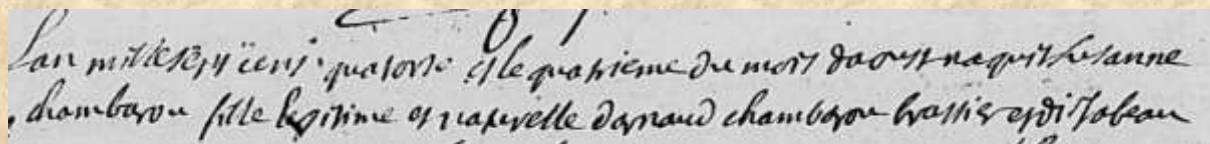 Lan mil sept cens quatorse et le quatrieme du mois daoust naquit Susanne
chambarou fille legitime et naturelle darnaud chambarou brassier et disabeau